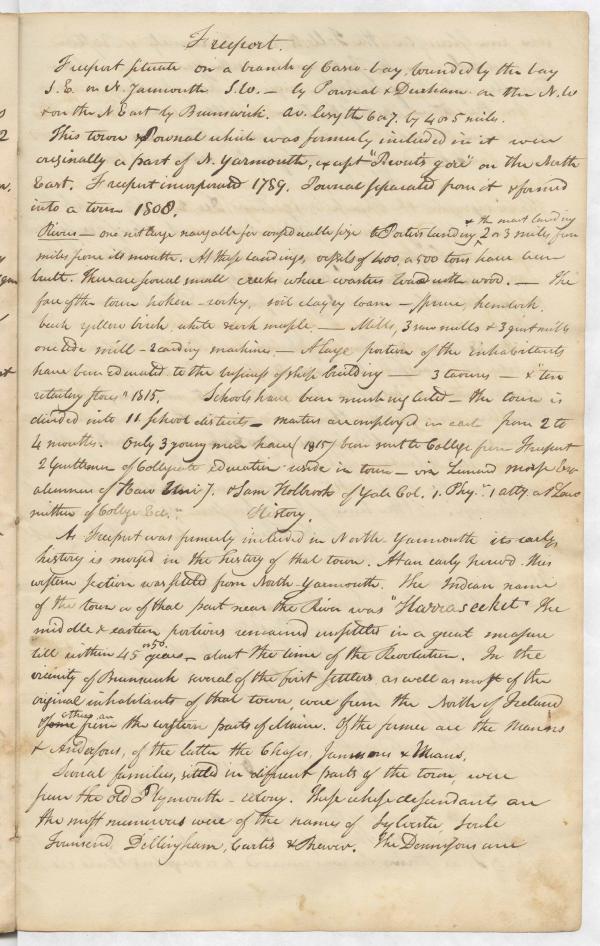 Freeport.
Freeport situate on a branch of Casco-bay, bounded by the bay
S.E. on N. Yarmouth S.W. — by Pownal & Durham on the N.W
& on the N East by Brunswick. Av. length 6 or 7. by 4 or 5 miles.
This town & Pownal which was formerly included in it were
originally a part of N. Yarmouth, except "Prout's gore" on the North
East. Freeport incorporated 1789. Pownal separated from it & formed
into a town 1808.
& the mast landing
Rivers — one not large navigable for considerable size to Porters landing 2 or 3 miles from
miles from its mouth. At these landings, vessels of 400, a 500 tons have been
built. There are several small creeks where coasters load with wood. — The
face of the town broken - rocky, soil clayey loam - spruce, hemlock,
beech yellow birch, white rock maple. — Mills, 3 saw mills & 3 grist mills
one tide mill - 2 carding machines. — A large portion of the inhabitants
have been educated to the business of ship building — 3 taverns — & "ten
retailing stores" 1815. Schools have been much neglected — the town is
divided into 11 school districts — masters are employed in each from 2 to
4 months. Only 3 young men have (1815) been sent to College from Freeport
2 Gentlemen of Collegiate education reside in town — viz
alumnus of & Sam Holbrook of Yale Col. 1. Phy.n 1 atty. at Law
neither of College Ed.n
History.
As Freeport was formerly included in North-Yarmouth its early
history is merged in the history of that town. At an early period this
western section was settled from North-Yarmouth. The Indian name
of the town or of that part near the River was "Harraseeket" The
middle & eastern portions remained unsettled in a great measure
till within 45 or 50 years — about the time of the Revolution. In the
vicinity of Brunswick several of the first settlers as well as most of the
original inhabitants of that town, were from the North of Ireland
others are from the western parts of Maine. Of the former are the Manns
& Andersons, of the latter the Chases, Jamesons & Means.
Several families, settled in different parts of the town, were
from the old Plymouth-colony. Those whose descendants are
the most numerous were of the name of Sylvester, Soule
Townsend, Dillingham, Curtis & Brewer. The Dennisons are